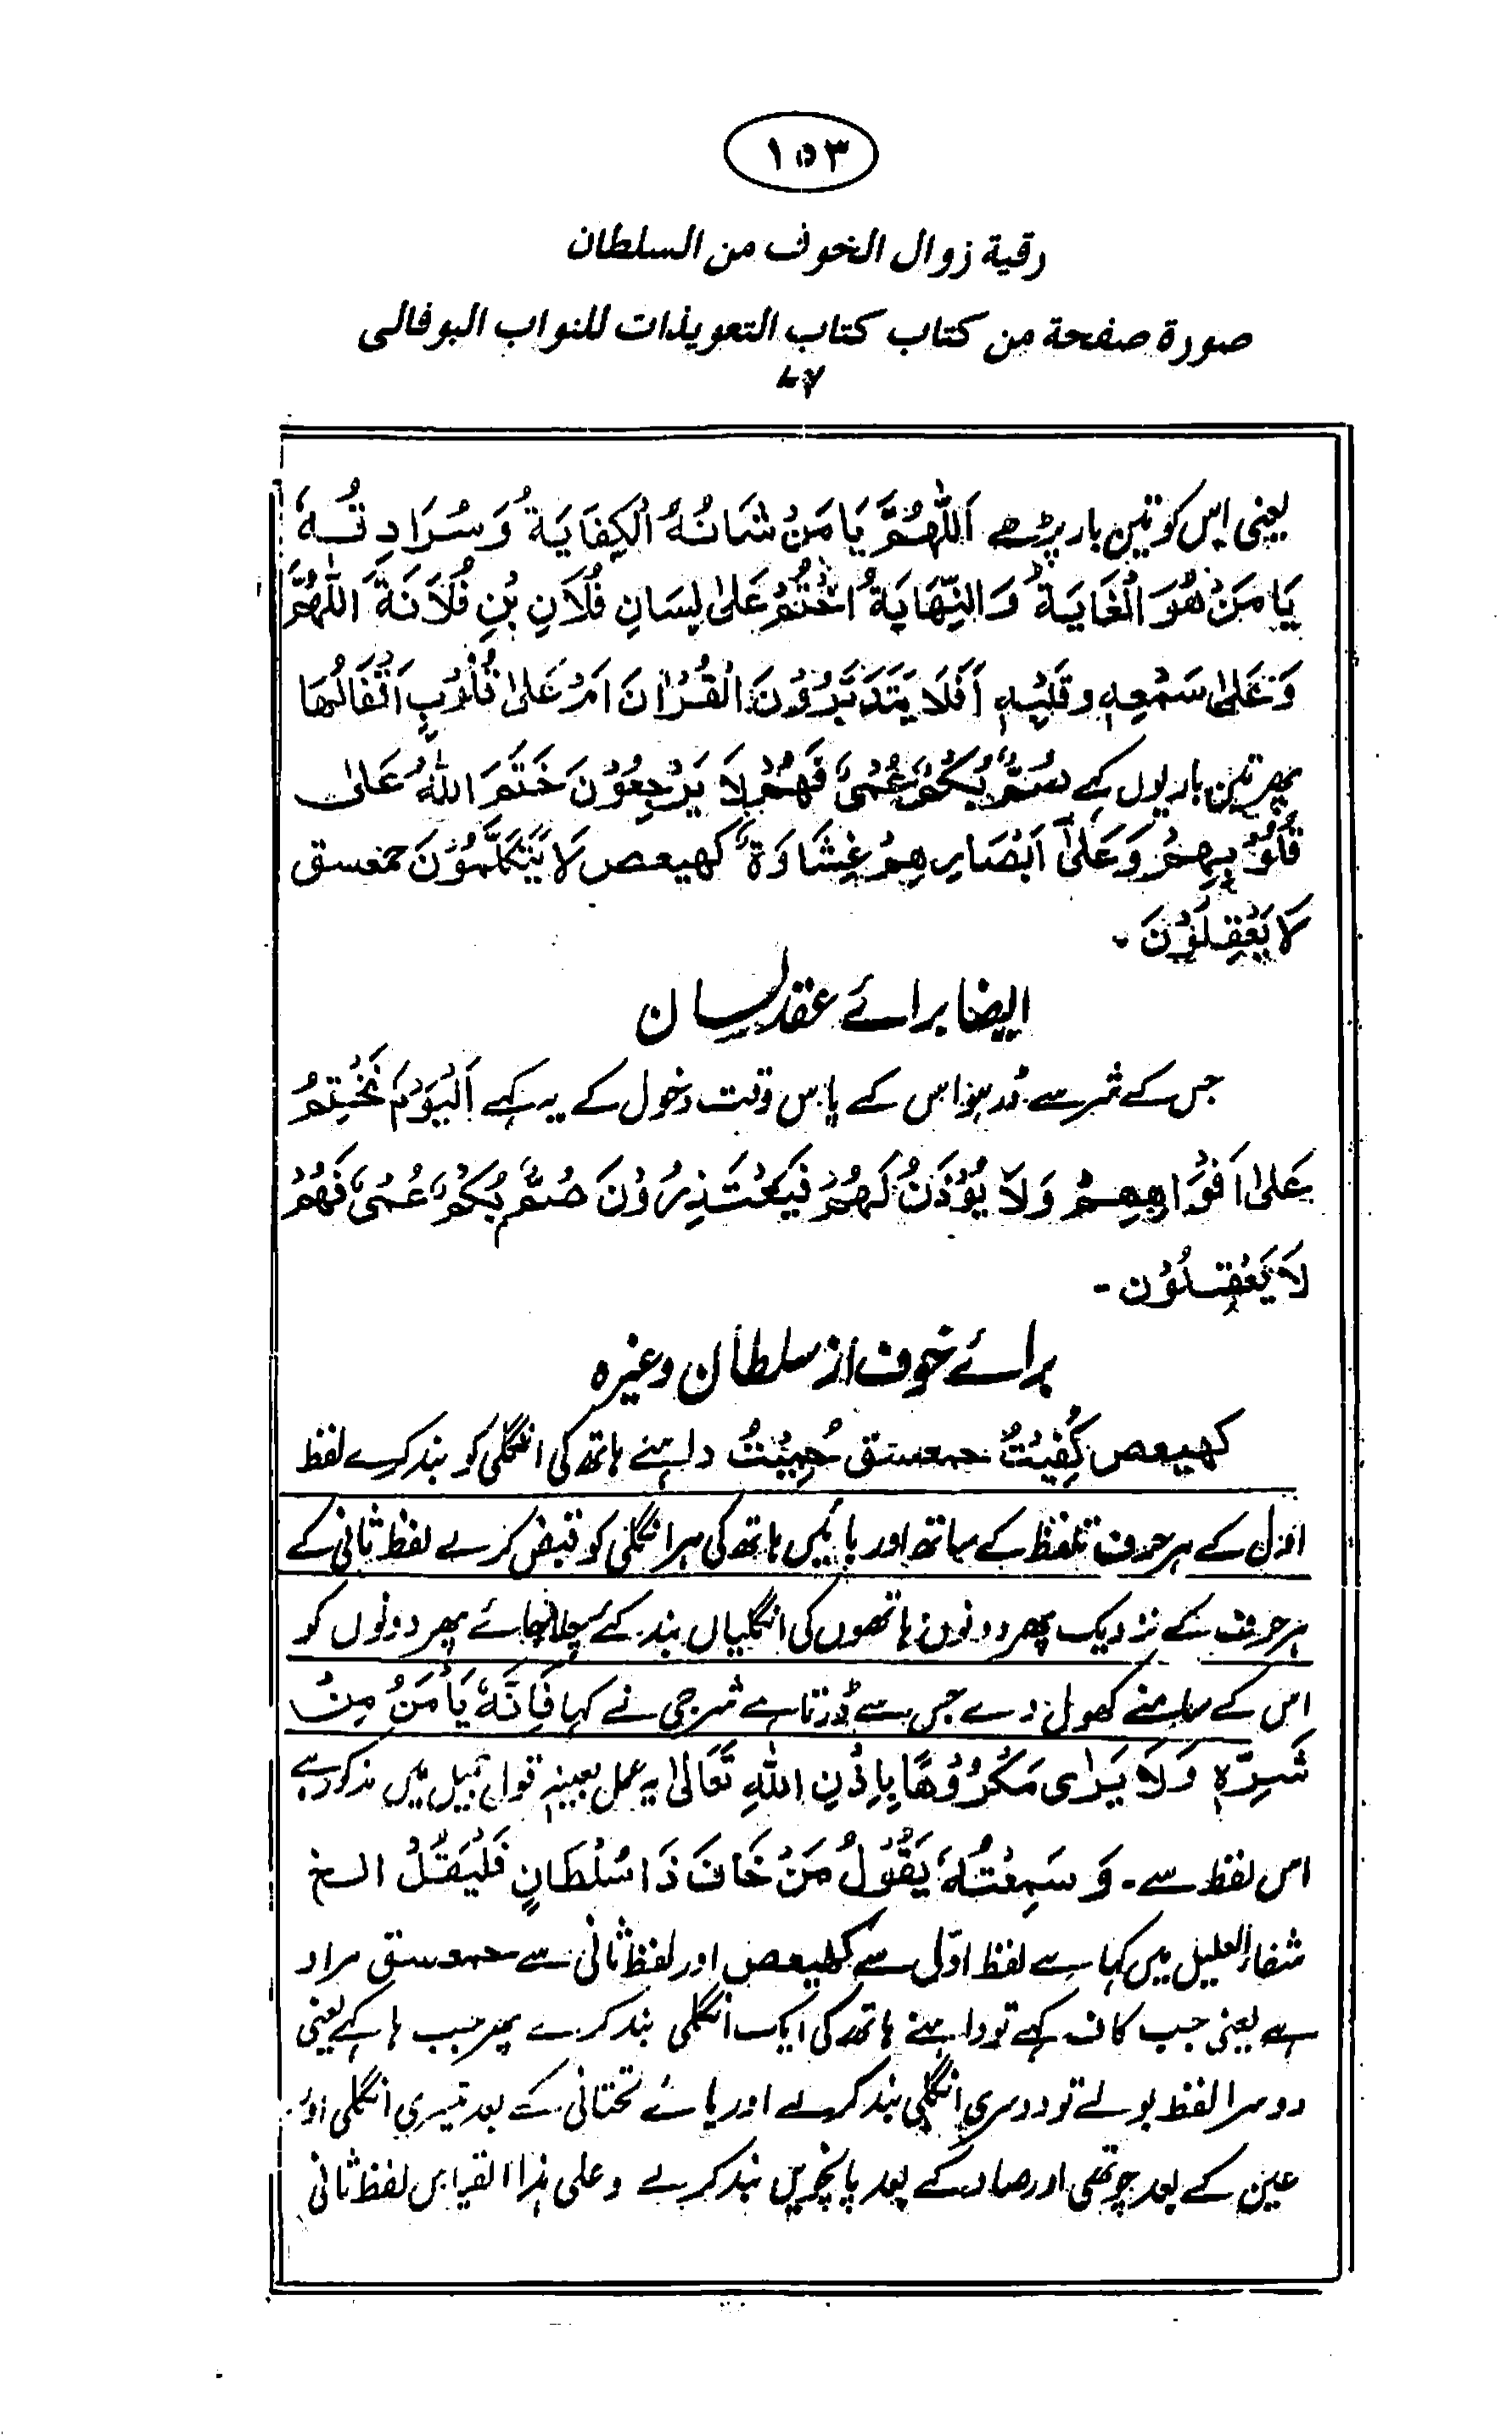 ١٥٣
رقية زوال الخوف من السلطان
صورة صفحة من كتاب كتاب التعويذات للنواب البوفالى
یعنی اس کو تین بار پڑھے اَللّٰهُمَّ يَا مَنْ شَانُهُ الْكِفَايَةُ وَسُرَادِتُهٗ
يَا مَنْ هُوَ الْغَايَةُ وَالنِّهَايَةُ اخْتُمْ عَلٰى لِسَانِ فُلَانِ بْنِ فُلَانَةَ اَللّٰهُمَّ
وَعَلٰى سَمْعِهٖ وقَلْبِهٖ اَفَلَا يَتَدَبَّرُوْنَ الْقُرْاٰنَ اَمْ عَلٰى قُلُوْبٍ اَقْفَالُهَا
پھر تین بار یوں کہے صُمٌّ بُكْمٌ عُمْىٌ فَهُمْ لَا يَرْجِعُوْنَ خَتَمَ اللّٰهُ عَلٰى
قُلُوْبِهِمْ وَعَلٰٓى اَبْصَارِهِمْ غِشَاوَةٌ كهيعص لَا يَتَكَلَّمُوْنَ حمعسق
لَا يَعْقِلُوْنَ ۔
ایضا برائے عقد لسان
جس کے شر سے ڈر ہو اس کے پاس وقت دخول کے یہ کہے اَلْيَوْمَ نَخْتِمُ
عَلٰى اَفْوَاهِهِمْ وَلَا يُؤْذَنُ لَهُمْ فَيَعْتَذِرُوْنَ صُمٌّ بُكْمٌ عُمْىٌ فَهُمْ
لَا يَعْقِلُوْن ۔
برائے خوف از سلطان وغیرہ
كهيعص كُفِيْتُ حمعسق حُمِيْتُ داہنے ہاتھ کی انگلی کو بند کرے لفظ
اوّل کے ہر حرف تلفظ کے ساتھ اور بائیں ہاتھ کی ہر انگلی کو قبض کرے لفظ ثانی کے
ہر حرف کے نزدیک پھر دونوں ہاتھوں کی انگلیاں بند کئے چلا جائے پھر دونوں کو
اس کے سامنے کھول دے جس سے ڈرتا ہے شرجی نے کہا فَاِنَّهٗ يَأْمَنُ مِنْ
شَرِّهٖ وَلَا يَرٰى مَكْرُوْهًا بِاِذْنِ اللّٰهِ تَعَالٰى یہ عمل بعینہ قول جمیل میں مذکور ہے
اس لفظ سے ۔ وَسَمِعْتُهٗ يَقُوْلُ مَنْ خَافَ ذَا سُلْطَانٍ فَلْيَقُلْ الخ
شفاء العلیل میں کہا ہے لفظ اوّل سے كهيعص اور لفظ ثانی سے حمعسق مراد
ہے یعنی جب کاف کہے تو داہنے ہاتھ کی ایک انگلی بند کرے پھر جب ہا کہے یعنی
دوسرا لفظ بولے تو دوسری انگلی بند کرلے اور یائے تحتانی کے بعد تیسری انگلی اور
عین کے بعد چوتھی اور صاد کے بعد پانچویں بند کرلے وعلی ہذا القیاس لفظ ثانی